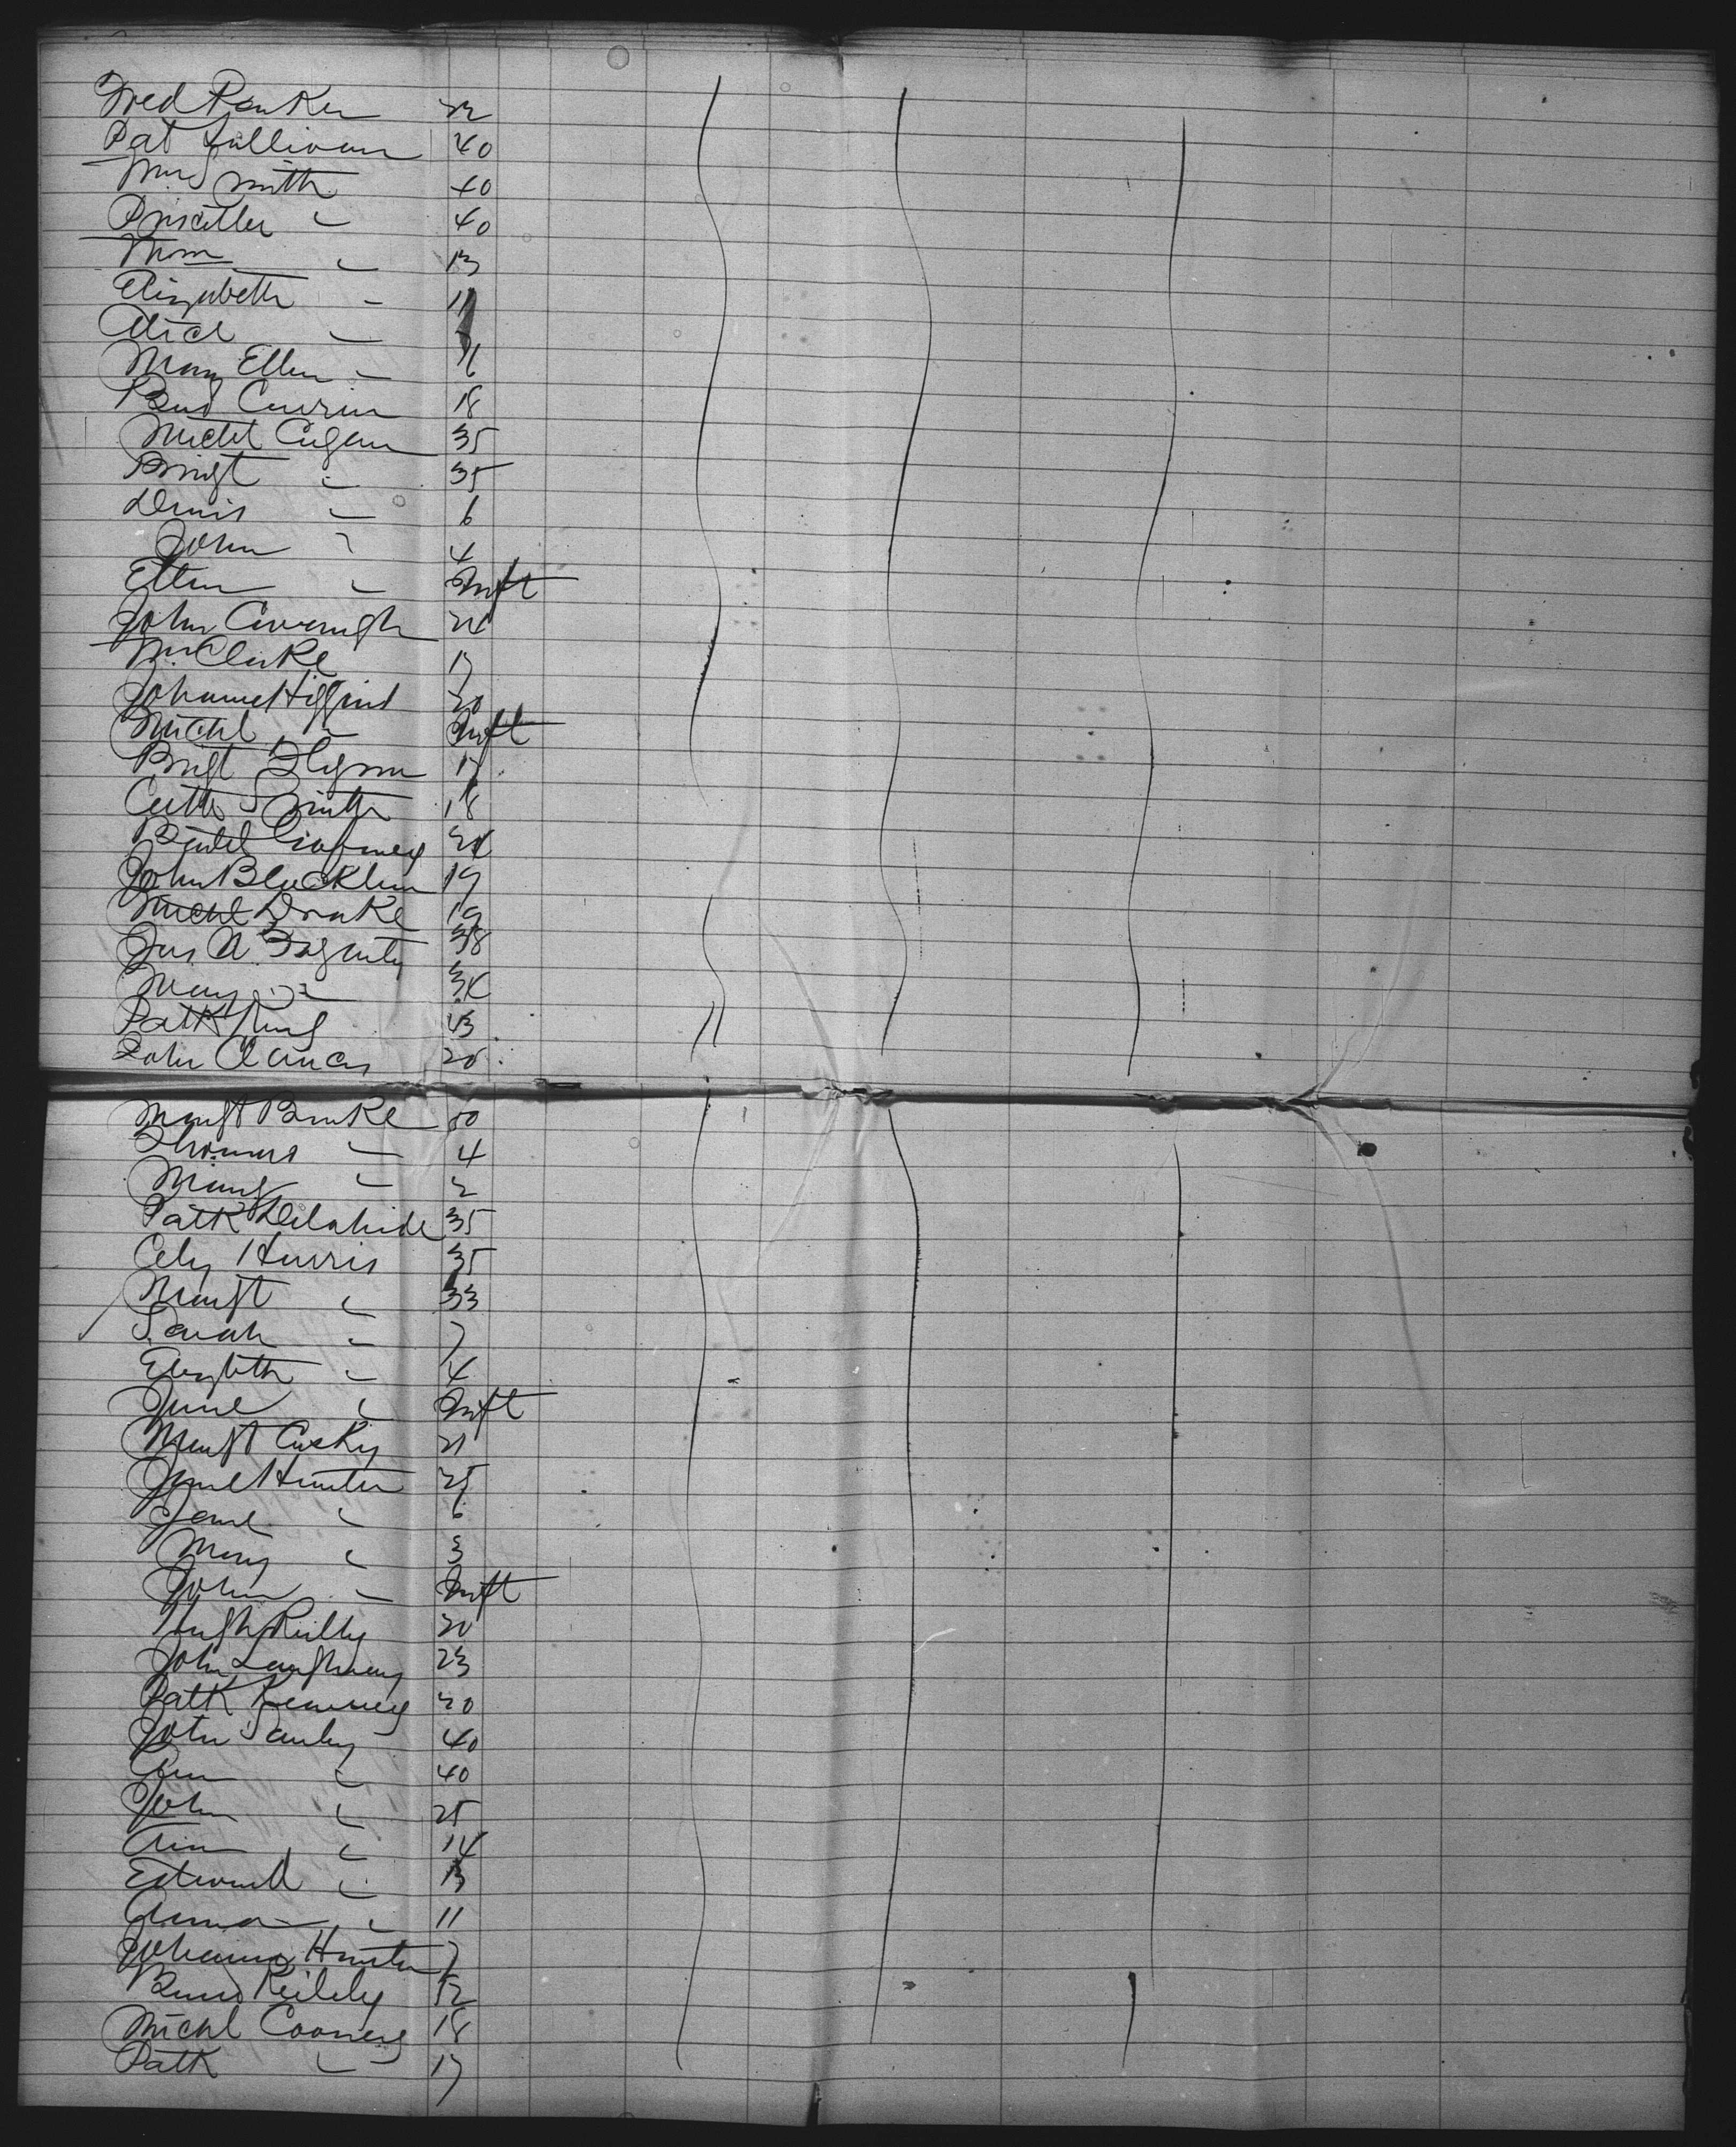 Fred Ranken 22
Pat Sullivan 40
Wm Smith 40
Priscilla " 40
Wm " 13
Elizabeth " 11
Alice "
Mary Ellen "
Bd Currin 18
Michl 35
Bridgt " 35
Denis " 6
John " 4
Ellen " Inft
John Cavanagh 24
M. Clarke 17
Johanna Higgins 20
Michl " Inft
Bridgt Flynn 17
Cath Smith 18
24
John Blacklin 19
Michl Drake 19
Jas A. Fogarty 38
Mary " 34
Patk King 43
John Clancy 20
Margt Burke 30
Thomas " 4
Mary " 2
Patk Delahide 35
Harris 35
Margt " 33
Sarah " 7
Elizbth " 4
Jane " Inft
Margt Cusky 21
Jane Hunter 25
Jane " 6
Mary " 3
John " Inft
Hugh Reilly 20
John Loughnany 23
Patk Kenney 20
John 40
Ann " 40
John " 25
Ann " 14
Edward " 13
Anna " 11
Johanna Hunter 7
Reilely 52
Michl Cooney 18
Patk " 17